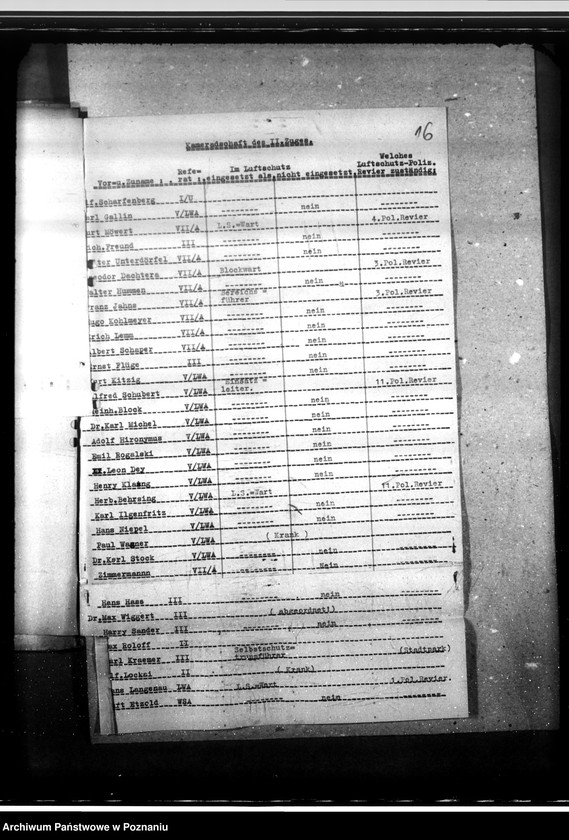 16
Kameradschaft des II.Zuges.
Vor-u.Zuname : Refe-rat : Im Luftschutz eingesetzt als nicht eingesetzt Welches Luftschutz-Poliz. Revier zuständig:
Scharfenberg I/U -------- nein --------
Gallin V/LWA L.S.-Wart 4.Pol.Revier
Möwert VII/A -------- nein --------
Freund III -------- nein --------
Unterdörfel VII/A Blockwart 3.Pol.Revier
Dachtera VII/A -------- nein --------
Hummen VII/A Bereichs = führer 3.Pol.Revier
Jahns VII/A -------- nein --------
Kohlmeyer VII/A -------- nein --------
Lemm VII/A -------- nein --------
Schaper VII/A -------- nein --------
Flüge III -------- nein --------
Kitzig V/LWA Einsatz = leiter. 11.Pol.Revier
Alfred Schubert V/LWA -------- nein --------
Reinh.Block V/LWA -------- nein --------
Dr.Karl Michel V/LWA -------- nein --------
Adolf Hieronymus V/LWA -------- nein --------
Emil Rogalski V/LWA -------- nein --------
Leon Dey V/LWA -------- nein --------
Henry Klaang V/LWA L.S.-Wart 11.Pol.Revier
Herb.Behrsing V/LWA -------- nein --------
Karl Ilgenfritz V/LWA -------- nein --------
Hans Niepel V/LWA ( Krank )
Paul Wagner V/LWA -------- nein --------
Dr.Karl Stock V/LWA -------- Nein --------
Zimmermann VII/A
Hans Haas III -------- nein --------
Dr.Max Wiggert III ( abgeordnet)
Harry Sander III -------- nein --------
Roloff II Selbstschutz-truppführer (Stadtpark)
Kraemer III
Lockai II ( Krank)
Langenau LWA L.S.-Wart 1.Pol.Revier.
Etzold WSA -------- nein --------
Archiwum Państwowe w Poznaniu